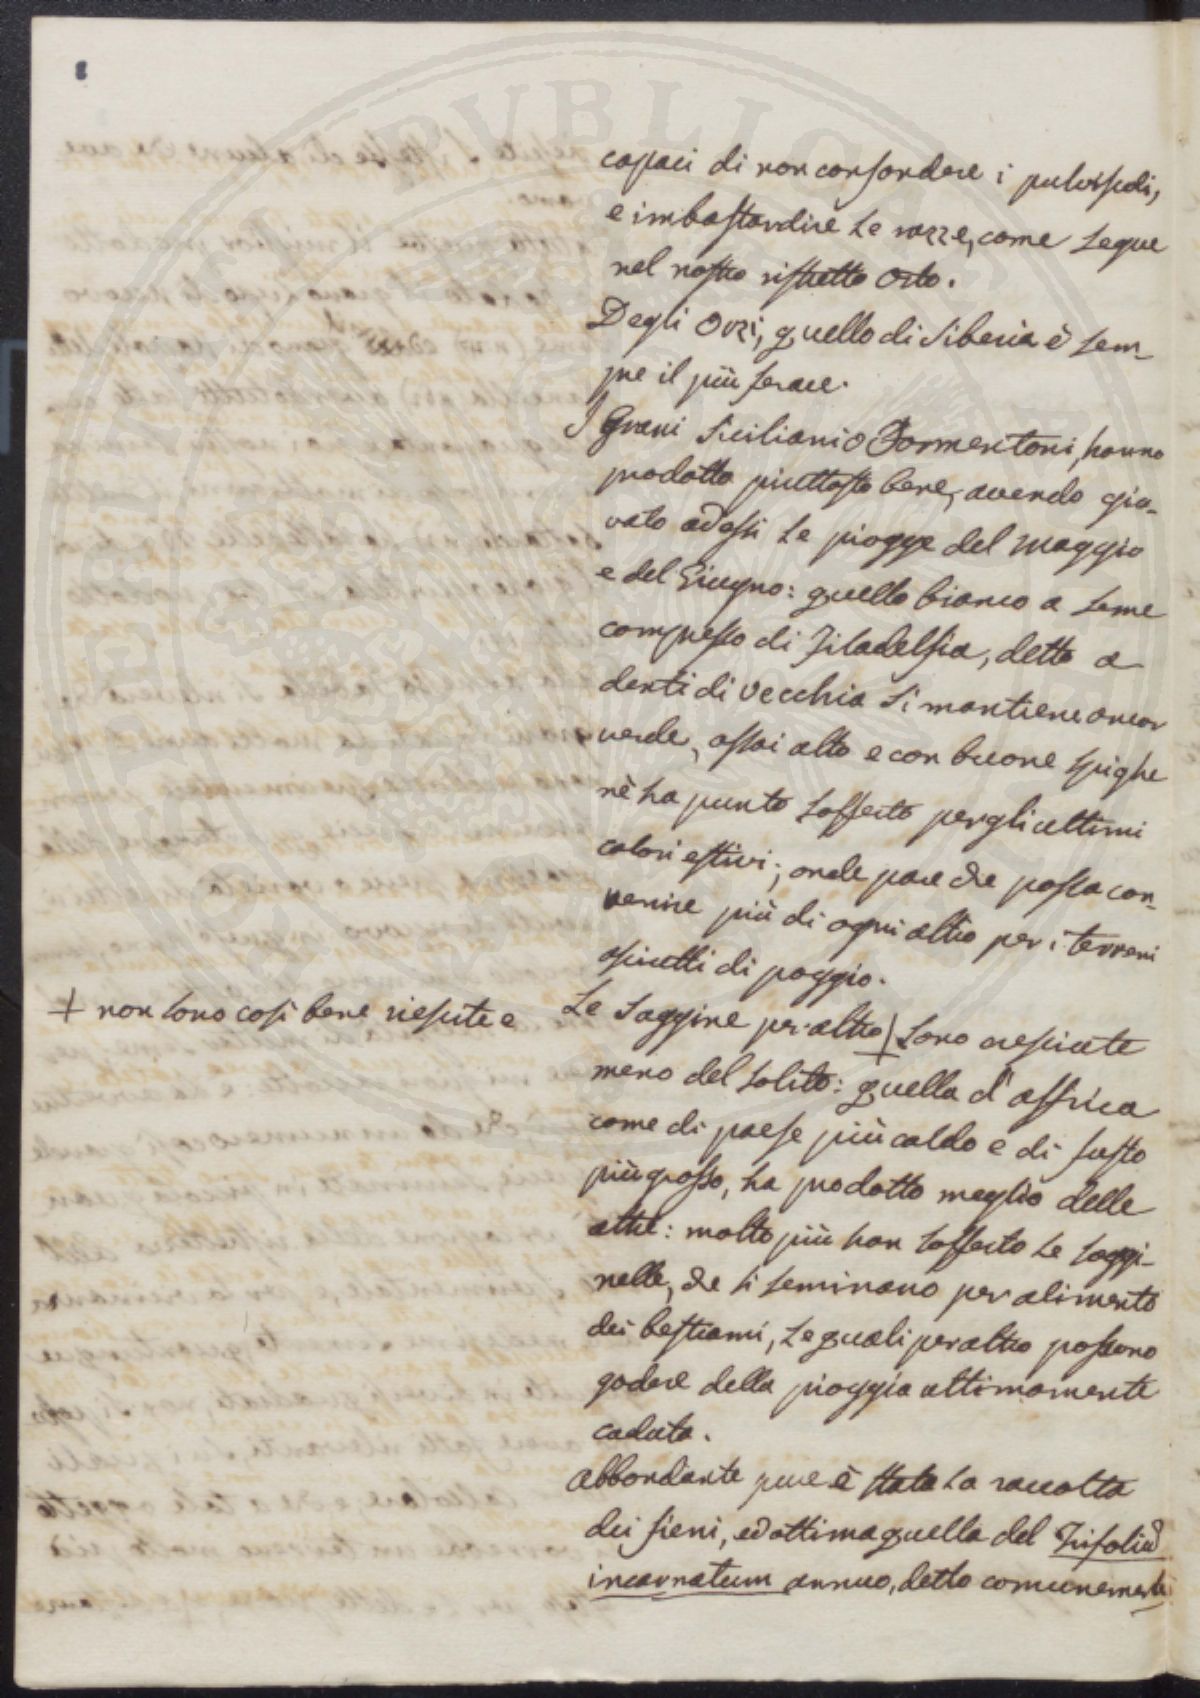 capaci di non confondere i pulviscoli,
e imbastardire le razze, come segue
nel nostro ristretto Orto.
Degli Orzi, quello di Siberia è sem-
pre il più ferace.
I Grani Siciliani o Formentoni, hanno
prodotto piuttosto bene, avendo gio-
vato ad essi le piogge del Maggio
e del Giugno: quello bianco a seme
compresso di Filadelfia, detto a
denti di vecchia si mantiene ancor
verde, assai alto e con buone spighe
nè ha punto sofferto per gli ultimi
calori estivi; onde pare che possa con-
venire più di ogni altro per i terreni
asciutti di poggio.
Le Saggine per altro + sono cresciute
+ non sono così bene riescite e
meno del solito: quella d'affrica
come di paese più caldo e di fusto
più grosso, ha prodotto meglio delle
altre: molto più han sofferto le saggi-
nelle, che si seminano per alimento
dei bestiami, le quali per altro possono
godere della pioggia ultimamente
caduta.
Abbondante pure è stata la raccolta
dei fieni, ed ottima quella del Trifoliu
incarnatum annuo, detto comunemente